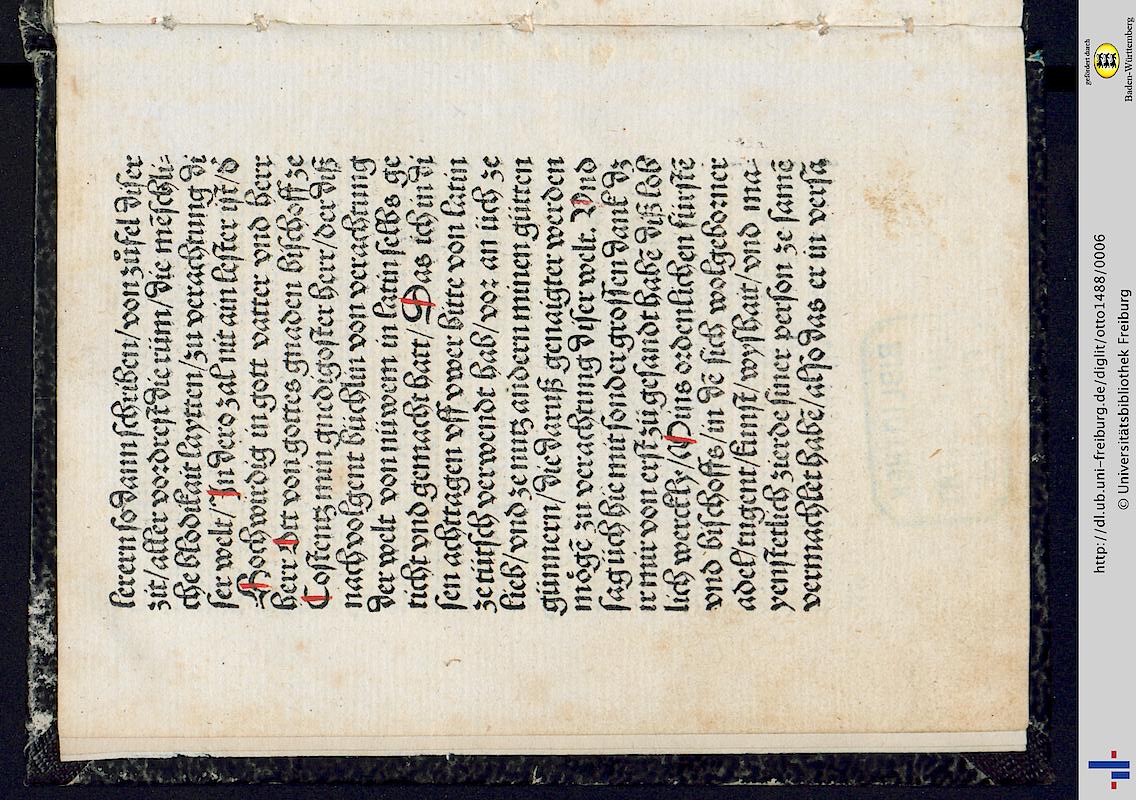 serern so dann schriben/ von zůfel diser
zit/ aller vordrest die rüm/ die mēschli⸗
che blödikait laytten/ zu verachtung di
ser welt/ In dero zal nit ain lester ist/ ð
Hochwirdig in gott vatter vnd herr
herr Ott von gottes gnaden bischoff ze
Costentz min gnedigoster herr/ der diß
nachvolgent büchlin von verachtung
der welt von nüwem in latin selbs ge
ticht vnd gemacht hatt/ Das ich in di
sen achttagen vff vwer bitte von latin
ze tütsch verwendt hab/ vor an üch ze
lieb/ vnd ze nutz andern minen gůtten
günnern/ die daruß genaigter werden
mögē zu verachtung diser welt. Vnd
sag üch hie mit sonder grossen danck dz
ir mir von erst zůgesandt habē diß lob
lich wercklÿ/ Dins ordenlichen fürstē
vnd bischoffs/ in dē sich wolgeborner
adel/ tugent/ kunst/ wyßhait/ vnd ma⸗
yenstetlich zierde siner person ze samē
vermachlet habē/ also das er in versta
http://dl.ub.uni-freiburg.de/diglit/otto1488/0006
© Universitätsbibliothek Freiburg
gefördert durch
Baden-Württemberg